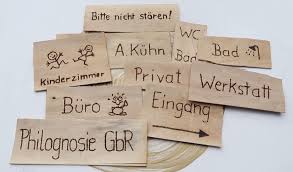 Bitte nicht stören!
Kinderzimmer
A.Kühn
WC
Bad
Bad
Privat
Werkstatt
Büro
Eingang
Philognosie GbR